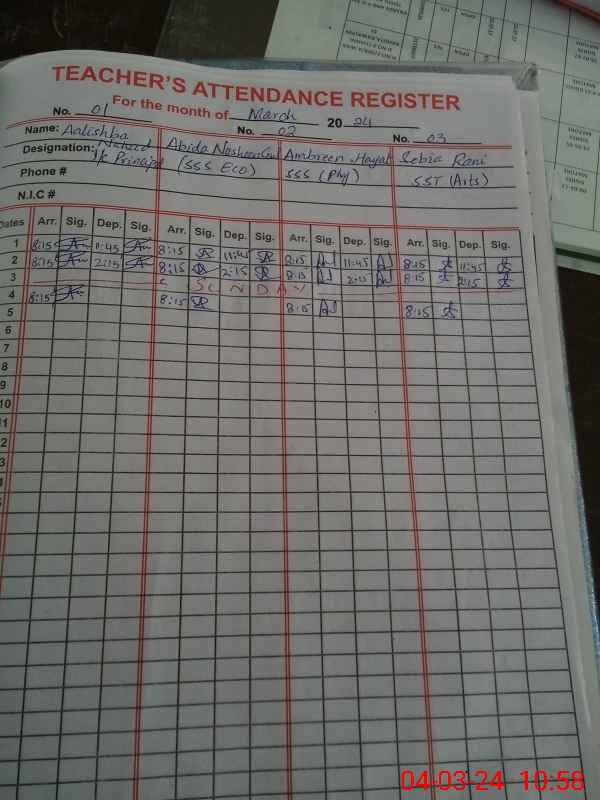 TEACHER'S ATTENDANCE REGISTER
For the month of March 2024
No. 01 No. 02 No. 03
Name: Aalishba Abida Nosheen Gul Ambreen Hayat Sebia Rani
Designation: Naheed (SSS Eco) SSS (Phy) SST (Arts)
I/c Principal
Phone #
N.I.C #
Dates Arr. Sig. Dep. Sig. Arr. Sig. Dep. Sig. Arr. Sig. Dep. Sig. Arr. Sig. Dep. Sig.
1 8:15 11:45 8:15 11:45 8:15 11:45 8:15 11:45
2 8:15 2:15 8:15 2:15 8:15 2:15 8:15 2:15
3 S U N D A Y
4 8:15 8:15 8:15 8:15
5
6
7
8
9
10
11
2
3
04-03-24 10:58